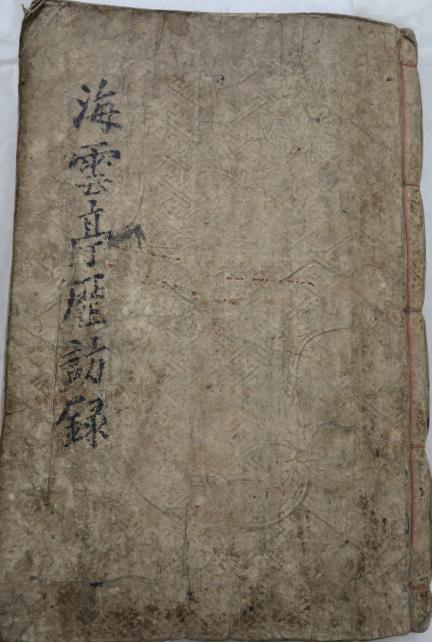 海雲亭歷訪録